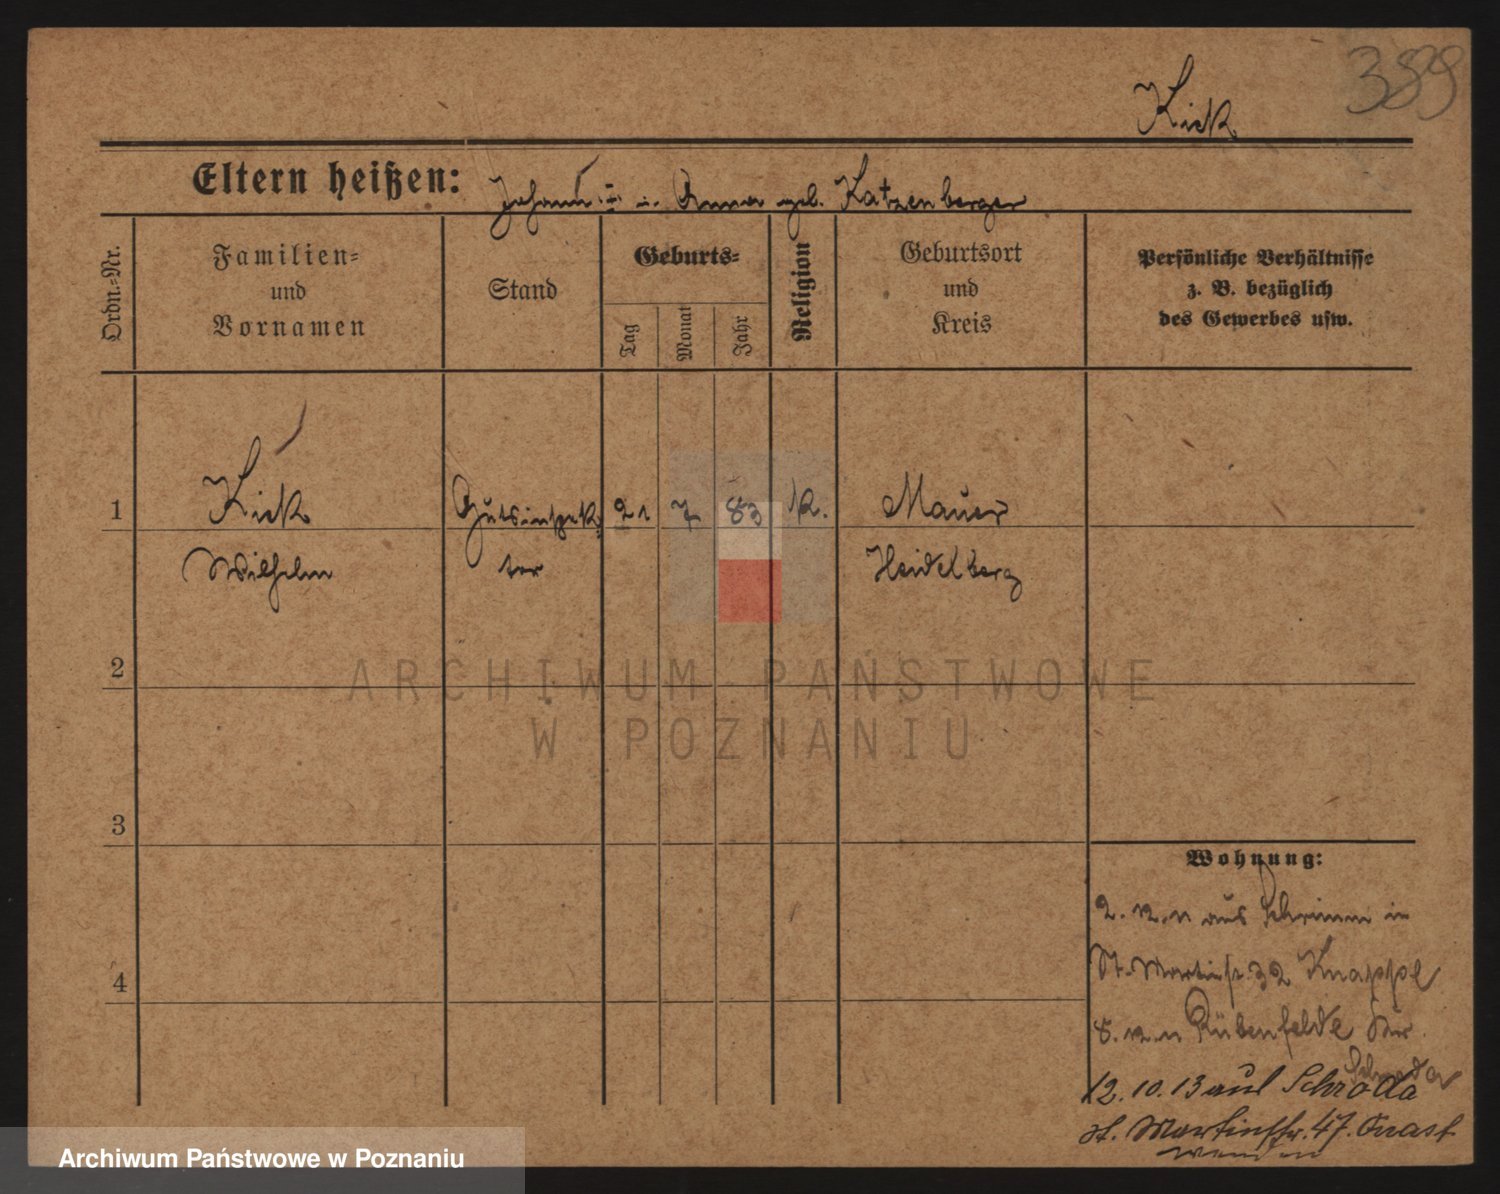 389
Kick
Eltern heißen: Johann u. Anna geb. Katzenberger
Ordn.-Nr.
Familien-
und
Vornamen
Stand
Geburts-
Tag
Monat
Jahr
Religion
Geburtsort
und
Kreis
Persönliche Verhältnisse
z. B. bezüglich
des Gewerbes usw.
1 Kick Gutsinspek 21 7 83 K. Mauer
Wilhelm tor Heidelberg
2
3
4
Wohnung:
2. 12. 11 aus Schrimm in
St. Martinstr. 32 Knappe
8. 12. 11 Rübenfelde Kr.
Schroda
12. 10. 13 aus Schroda
St. Martinstr. 47.
ARCHIWUM PAŃSTWOWE
W POZNANIU
Archiwum Państwowe w Poznaniu